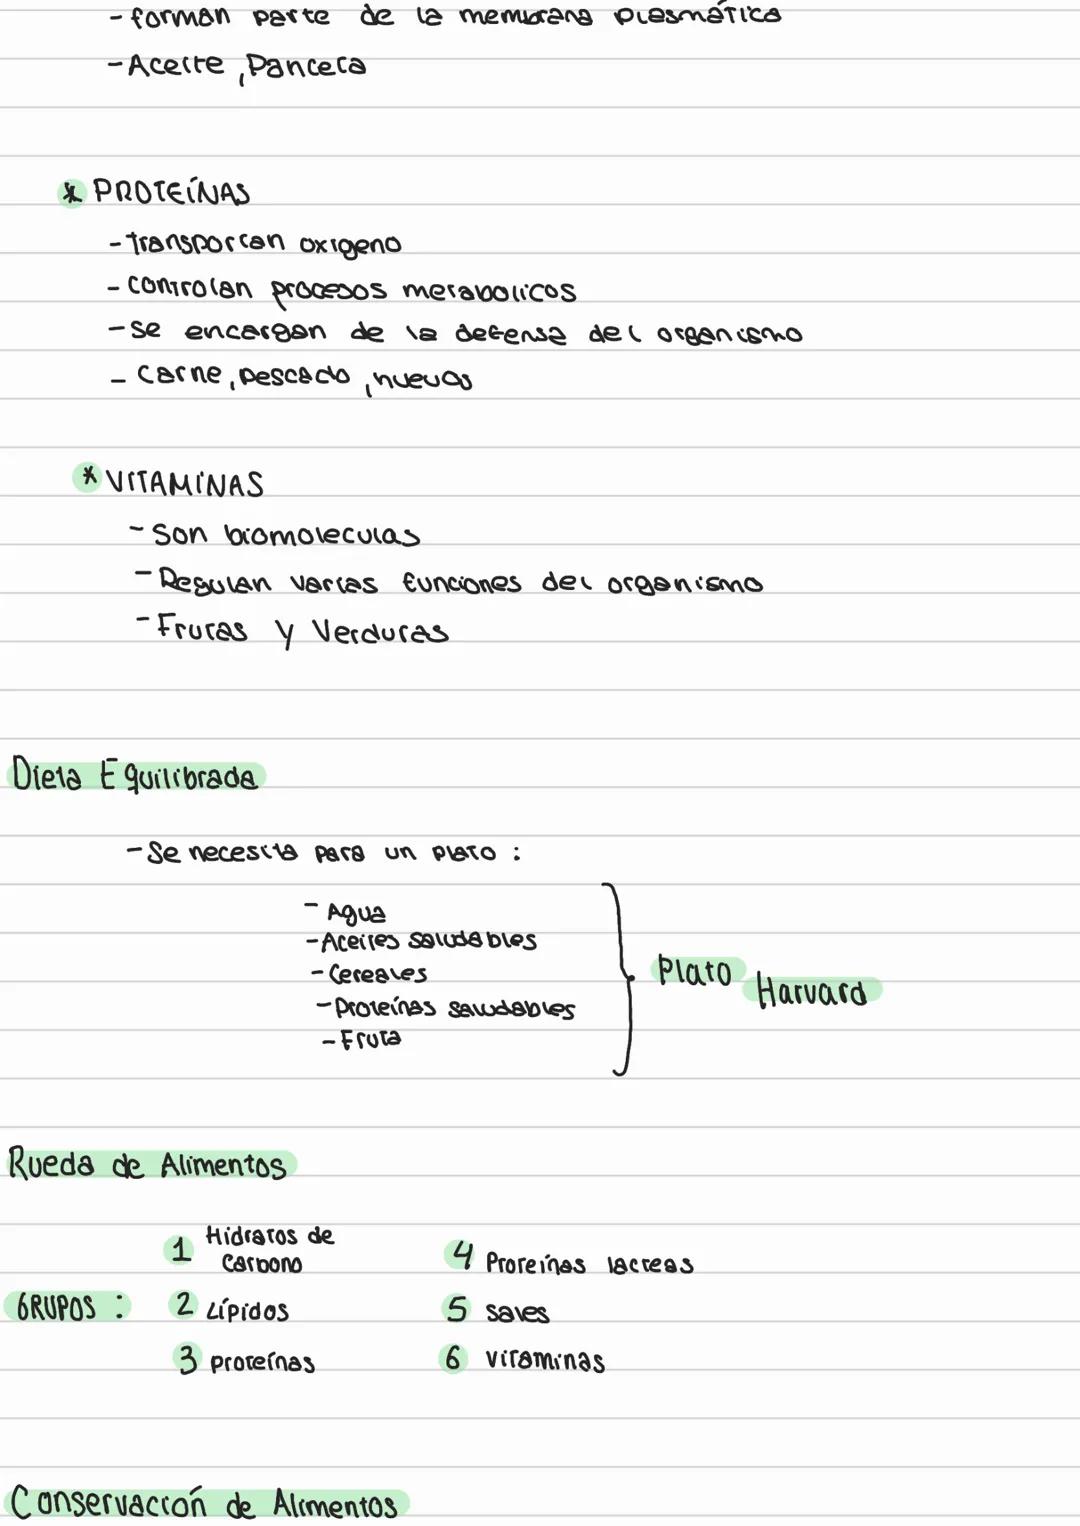 - forman parte de la membrana plasmática
- Aceite, Panceta
* PROTEÍNAS
- Transportan oxigeno
- controlan procesos metabolicos
- se encargan de la defensa del organismo
- Carne, pescado, huevos
* VITAMINAS
- Son biomoleculas
- Regulan varias funciones del organismo
- Frutas y Verduras
Dieta Equilibrada
- Se necesita para un plato :
- Agua
- Aceites saludables
- Cereales
- Proteínas saludables
- Fruta
Plato Harvard
Rueda de Alimentos
GRUPOS :
1 Hidratos de
Carbono
2 Lípidos
3 proteínas
4 Proteínas lacteas
5 sales
6 vitaminas
Conservación de Alimentos